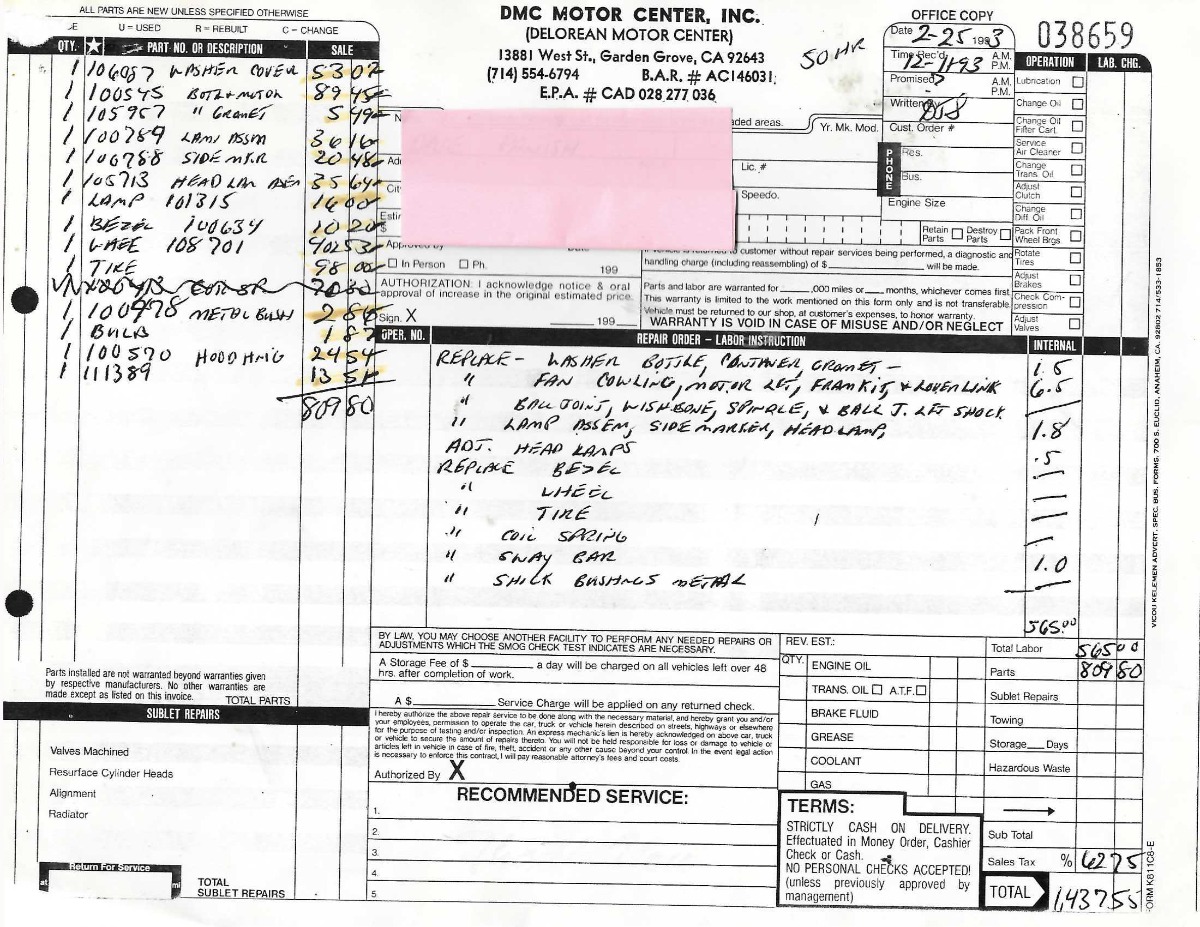 ALL PARTS ARE NEW UNLESS SPECIFIED OTHERWISE
U = USED R = REBUILT C = CHANGE
QTY. PART NO. OR DESCRIPTION SALE
1 106087 WASHER COVER 53 02
1 100545 BOTL + MOTOR 89 45
1 105957 " GROMET 5 49
1 100789 LAMP ASSM 36 16
1 100788 SIDE MKR 20 48
1 105713 HEAD LAM ASEM 35 64
1 LAMP 101315 16 00
1 BEZEL 100634 10 20
1 WHEE 108701 402 53
1 TIRE 98 00
1 100478 METAL BUSH 2 86
1 BULB 1 87
1 100570 HOOD HNIG 24 54
1 111389 13 51
809 80
DMC MOTOR CENTER, INC.
(DELOREAN MOTOR CENTER)
13881 West St., Garden Grove, CA 92643
(714) 554-6794 B.A.R. # AC146031
E.P.A. # CAD 028 277 036
50 HR
OFFICE COPY
Date 2-25 1993
Time Rec'd 12-11-93 A.M. P.M.
Promised A.M. P.M.
Written By
Cust. Order #
038659
aded areas.
Yr. Mk. Mod.
Lic. #
Speedo.
PHONE
Res.
Bus.
Engine Size
Retain Parts Destroy Parts
Esti
$
Approved by Date
In Person Ph. 199
AUTHORIZATION: I acknowledge notice & oral
approval of increase in the original estimated price.
Sign. X 199
to customer without repair services being performed, a diagnostic and
handling charge (including reassembling) of $ will be made.
Parts and labor are warranted for ,000 miles or months, whichever comes first.
This warranty is limited to the work mentioned on this form only and is not transferable.
Vehicle must be returned to our shop, at customer's expenses, to honor warranty.
WARRANTY IS VOID IN CASE OF MISUSE AND/OR NEGLECT
OPERATION LAB. CHG.
Lubrication
Change Oil
Change Oil Filter Cart.
Service Air Cleaner
Change Trans. Oil
Adjust Clutch
Change Diff. Oil
Pack Front Wheel Brgs
Rotate Tires
Adjust Brakes
Check Compression
Adjust Valves
OPER. NO. REPAIR ORDER - LABOR INSTRUCTION INTERNAL
REPLACE - WASHER BOTTLE, CONTAINER GROMET - 1.5
" FAN COWLING, MOTOR LFT, FRAM KIT, & LOWER LINK 6.5
" BALL JOINT, WISHBONE, SPINDLE, & BALL J. LFT SHOCK
" LAMP ASSEM, SIDE MARKER, HEAD LAMP, 1.8
ADJ. HEAD LAMPS .5
REPLACE BEZEL
" WHEEL
" TIRE
" COIL SPRING
" SWAY BAR 1.0
" SHICK BUSHINGS METAL
565.00
Parts installed are not warranted beyond warranties given
by respective manufacturers. No other warranties are
made except as listed on this invoice. TOTAL PARTS
SUBLET REPAIRS
Valves Machined
Resurface Cylinder Heads
Alignment
Radiator
Return For Service
at mi
TOTAL
SUBLET REPAIRS
BY LAW, YOU MAY CHOOSE ANOTHER FACILITY TO PERFORM ANY NEEDED REPAIRS OR
ADJUSTMENTS WHICH THE SMOG CHECK TEST INDICATES ARE NECESSARY.
A Storage Fee of $ a day will be charged on all vehicles left over 48
hrs. after completion of work.
A $ Service Charge will be applied on any returned check.
I hereby authorize the above repair service to be done along with the necessary material, and hereby grant you and/or
your employees, permission to operate the car, truck or vehicle herein described on streets, highways or elsewhere
for the purpose of testing and/or inspection. An express mechanic's lien is hereby acknowledged on above car, truck
or vehicle to secure the amount of repairs thereto. You will not be held responsible for loss or damage to vehicle or
articles left in vehicle in case of fire, theft, accident or any other cause beyond your control. In the event legal action
is necessary to enforce this contract, I will pay reasonable attorney's fees and court costs.
Authorized By X
RECOMMENDED SERVICE:
1.
2.
3.
4.
5
REV. EST.:
QTY.
ENGINE OIL
TRANS. OIL A.T.F.
BRAKE FLUID
GREASE
COOLANT
GAS
TERMS:
STRICTLY CASH ON DELIVERY.
Effectuated in Money Order, Cashier
Check or Cash.
NO PERSONAL CHECKS ACCEPTED!
(unless previously approved by
management)
Total Labor 565 00
Parts 809 80
Sublet Repairs
Towing
Storage Days
Hazardous Waste
Sub Total
Sales Tax % 62 75
TOTAL 1,437 55
VICOU KELEMEN ADVERT. SPEC. BUS. FORMS, 700 S. EUCLID, ANAHEIM, CA. 92802 714/533-1853
FORM K811C8-E